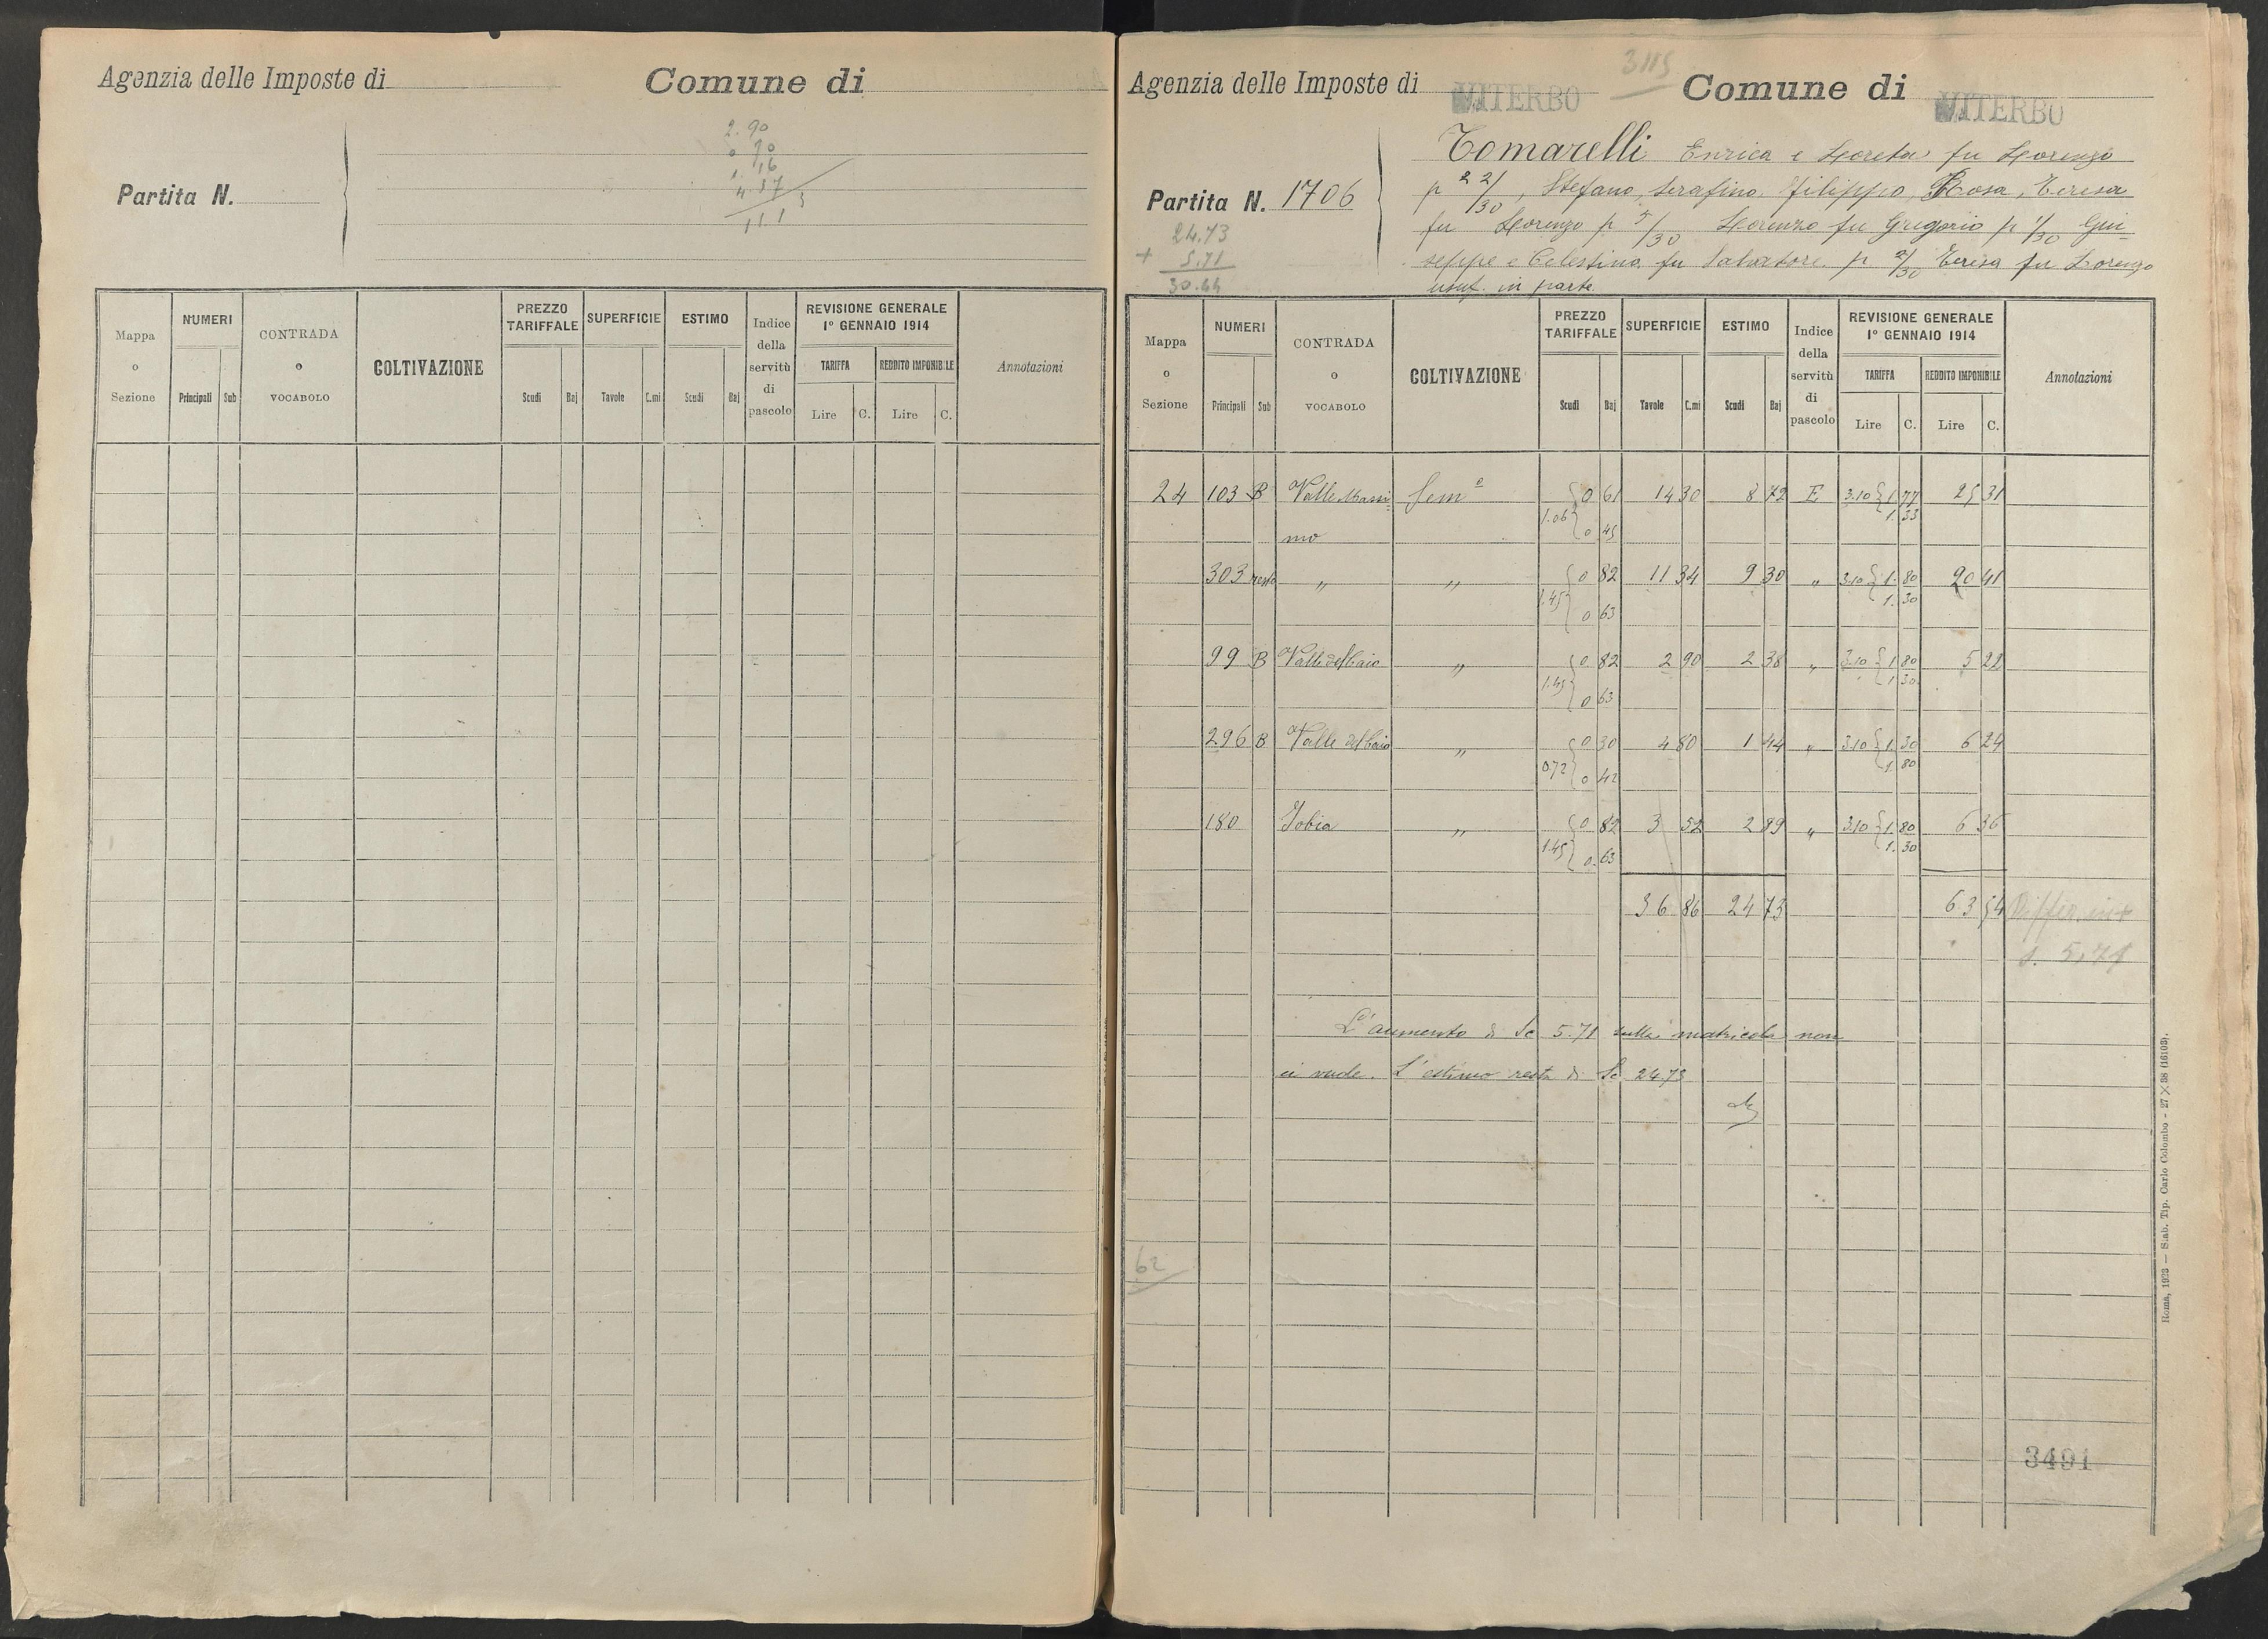 Agenzia delle Imposte di
Comune di
2.90
Partita N.
Mappa o Sezione
NUMERI
Principali
Sub
CONTRADA o VOCABOLO
COLTIVAZIONE
PREZZO TARIFFALE
Scudi
Baj
SUPERFICIE
Tavole
C.mi
ESTIMO
Scudi
Baj
Indice della servitù di pascolo
REVISIONE GENERALE 1° GENNAIO 1914
TARIFFA
Lire
C.
REDDITO IMPONIBILE
Lire
C.
Annotazioni
3115
Agenzia delle Imposte di VITERBO
Comune di VITERBO
Partita N. 1706
24.73
+ 5.71
30.44
Tomarelli Enrica e Loreta fu Lorenzo
p 22/30, Stefano, Serafino, Filippo, Rosa, Teresa
fu Lorenzo p 5/30 Lorenzo fu Gregorio p 1/30 Giu=
seppe e Celestino fu Salvatore p 2/30 Teresa fu Lorenzo
usuf. in parte
Mappa o Sezione
NUMERI
Principali
Sub
CONTRADA o VOCABOLO
COLTIVAZIONE
PREZZO TARIFFALE
Scudi
Baj
SUPERFICIE
Tavole
C.mi
ESTIMO
Scudi
Baj
Indice della servitù di pascolo
REVISIONE GENERALE 1° GENNAIO 1914
TARIFFA
Lire
C.
REDDITO IMPONIBILE
Lire
C.
Annotazioni
24 103 B Valle Sem e 0 61 14 30 8 72 E 3.10 1 77 25 31
mo 1.06 0 45 1. 33
303 resto " " 0 82 11 34 9 30 " 3.10 1. 80 20 41
1.45 0 63 1. 30
99 B Valle del Caio " 0 82 2 90 2 38 " 3.10 1 80 5 22
1.45 0 63 1 30
296 B Valle del Caio " 0 30 4 80 1 44 " 3.10 1. 30 6 24
0.72 0 42 1. 80
180 Tobia " 0 82 3 52 2 89 " 3.10 1. 80 6 36
1.45 0. 63 1. 30
36 86 24 73 63 54 Differ. in +
s. 5,71
L'aumento di Sc 5.71 sulla matricola non
si vede. L'estimo resta di Sc 24.73
62
3491
Roma, 1923 — Stab. Tip. Carlo Colombo - 27 X 38 (16103).